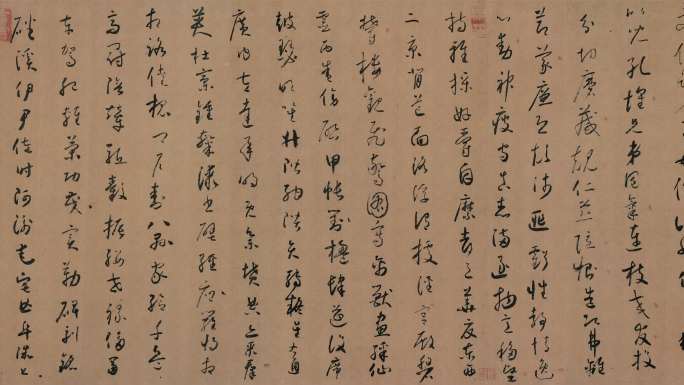 比兒孔懷兄弟同氣連枝交友投
分切磨箴規仁慈隱惻造次弗離
節義廉退顛沛匪虧性靜情逸
心動神疲守真志滿逐物意移堅
持雅操好爵自縻都邑華夏東西
二京背芒面洛浮渭據涇宮殿盤
鬱樓觀飛驚圖寫禽獸畫彩仙
靈丙舍傍啟甲帳對楹肆筵設席
鼓瑟吹笙升階納陛弁轉疑星右通
廣內左達承明既集墳典亦聚群
英杜稾鍾隸漆書壁經府羅將相
路俠槐卿戶封八縣家給千兵
高冠陪輦驅轂振纓世祿侈富
車駕肥輕策功茂實勒碑刻銘
磻溪伊尹佐時阿衡奄宅曲阜微旦